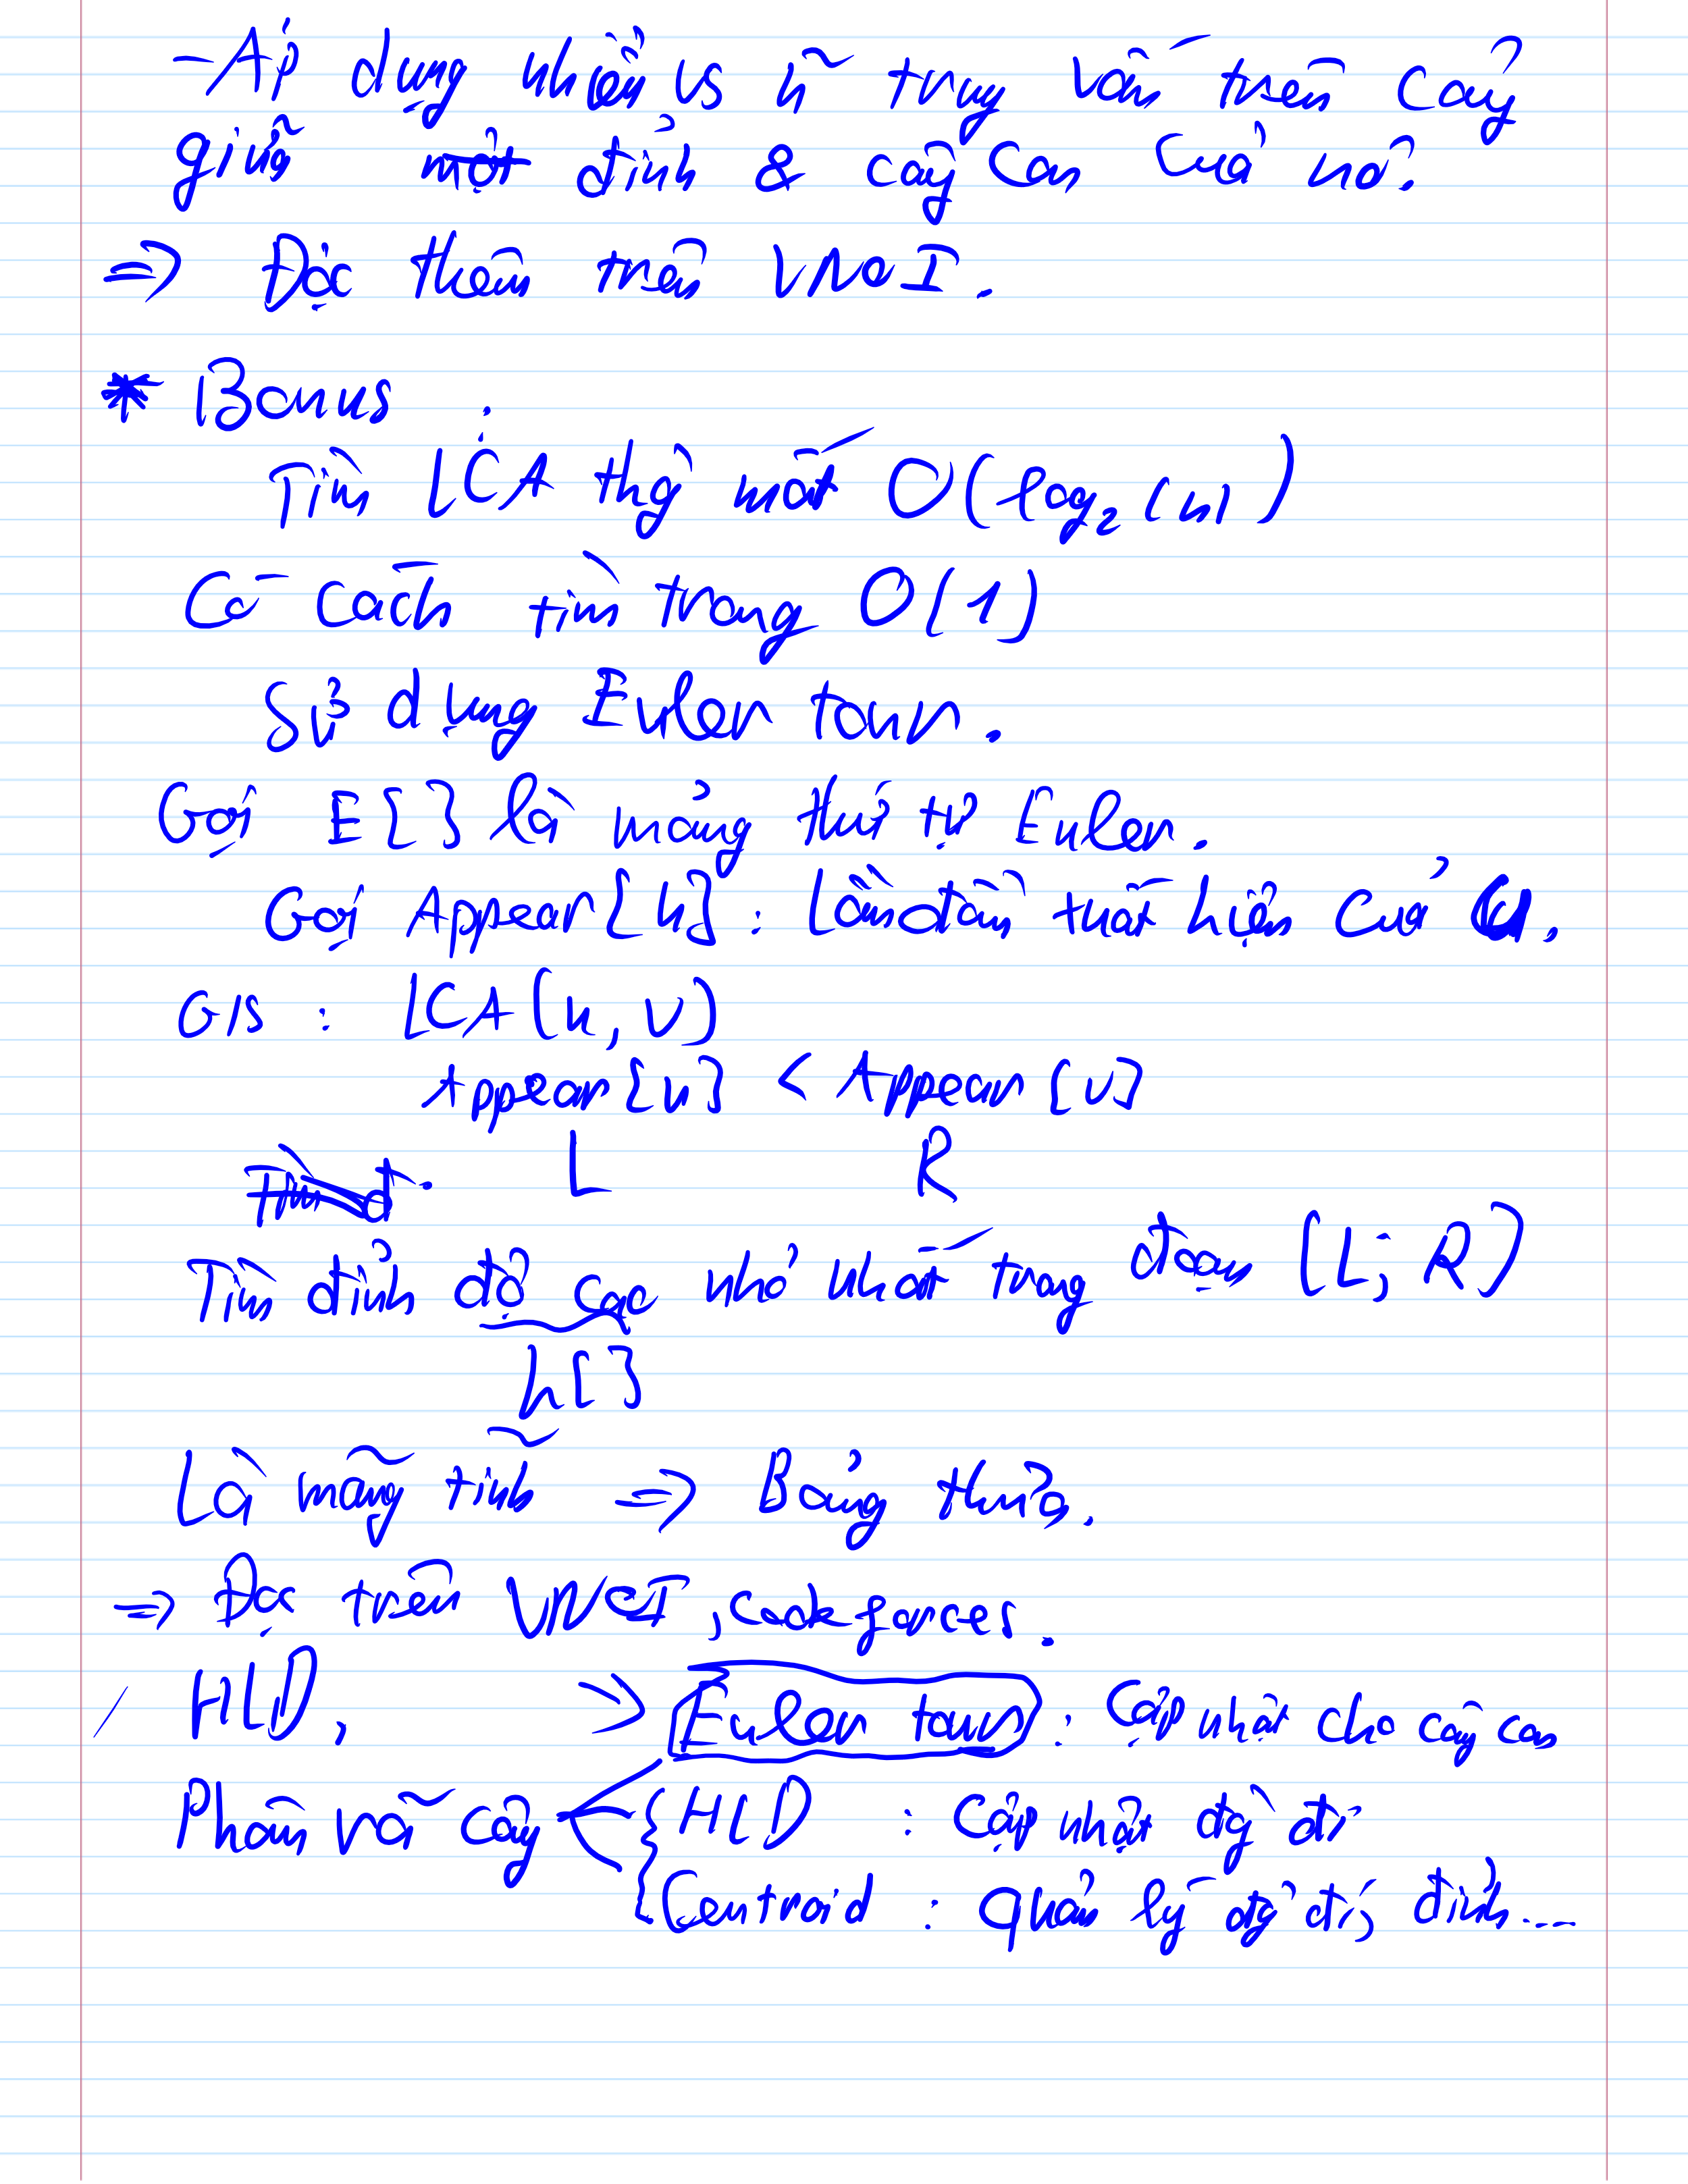 - Áp dụng nhiều vs n~ truy vấn trên cây
giữa một đỉnh & cây con của nó.
=> Đọc thêm trên VNOI.
* Bonus :
Tìm LCA thg mất O(log₂(n))
Có cách tìm trong O(1)
Sử dụng Euler tour.
Gọi E[] là mảng thứ tự Euler.
Gọi Appear[u] : Lần đầu xuất hiện của u.
G/s : LCA(u, v)
Appear[u] < Appear[v]
L R
Tìm đỉnh độ cao nhỏ nhất trong đoạn [L; R]
h[]
Là mảng tĩnh => Bảng thưa.
=> Đọc trên VNOI, codeforces.
HLD, => Euler tour : Cập nhật cho cây con
Phân rã cây { HLD : Cập nhật đg đi
Centroid : Quản lý đg đi, đỉnh...